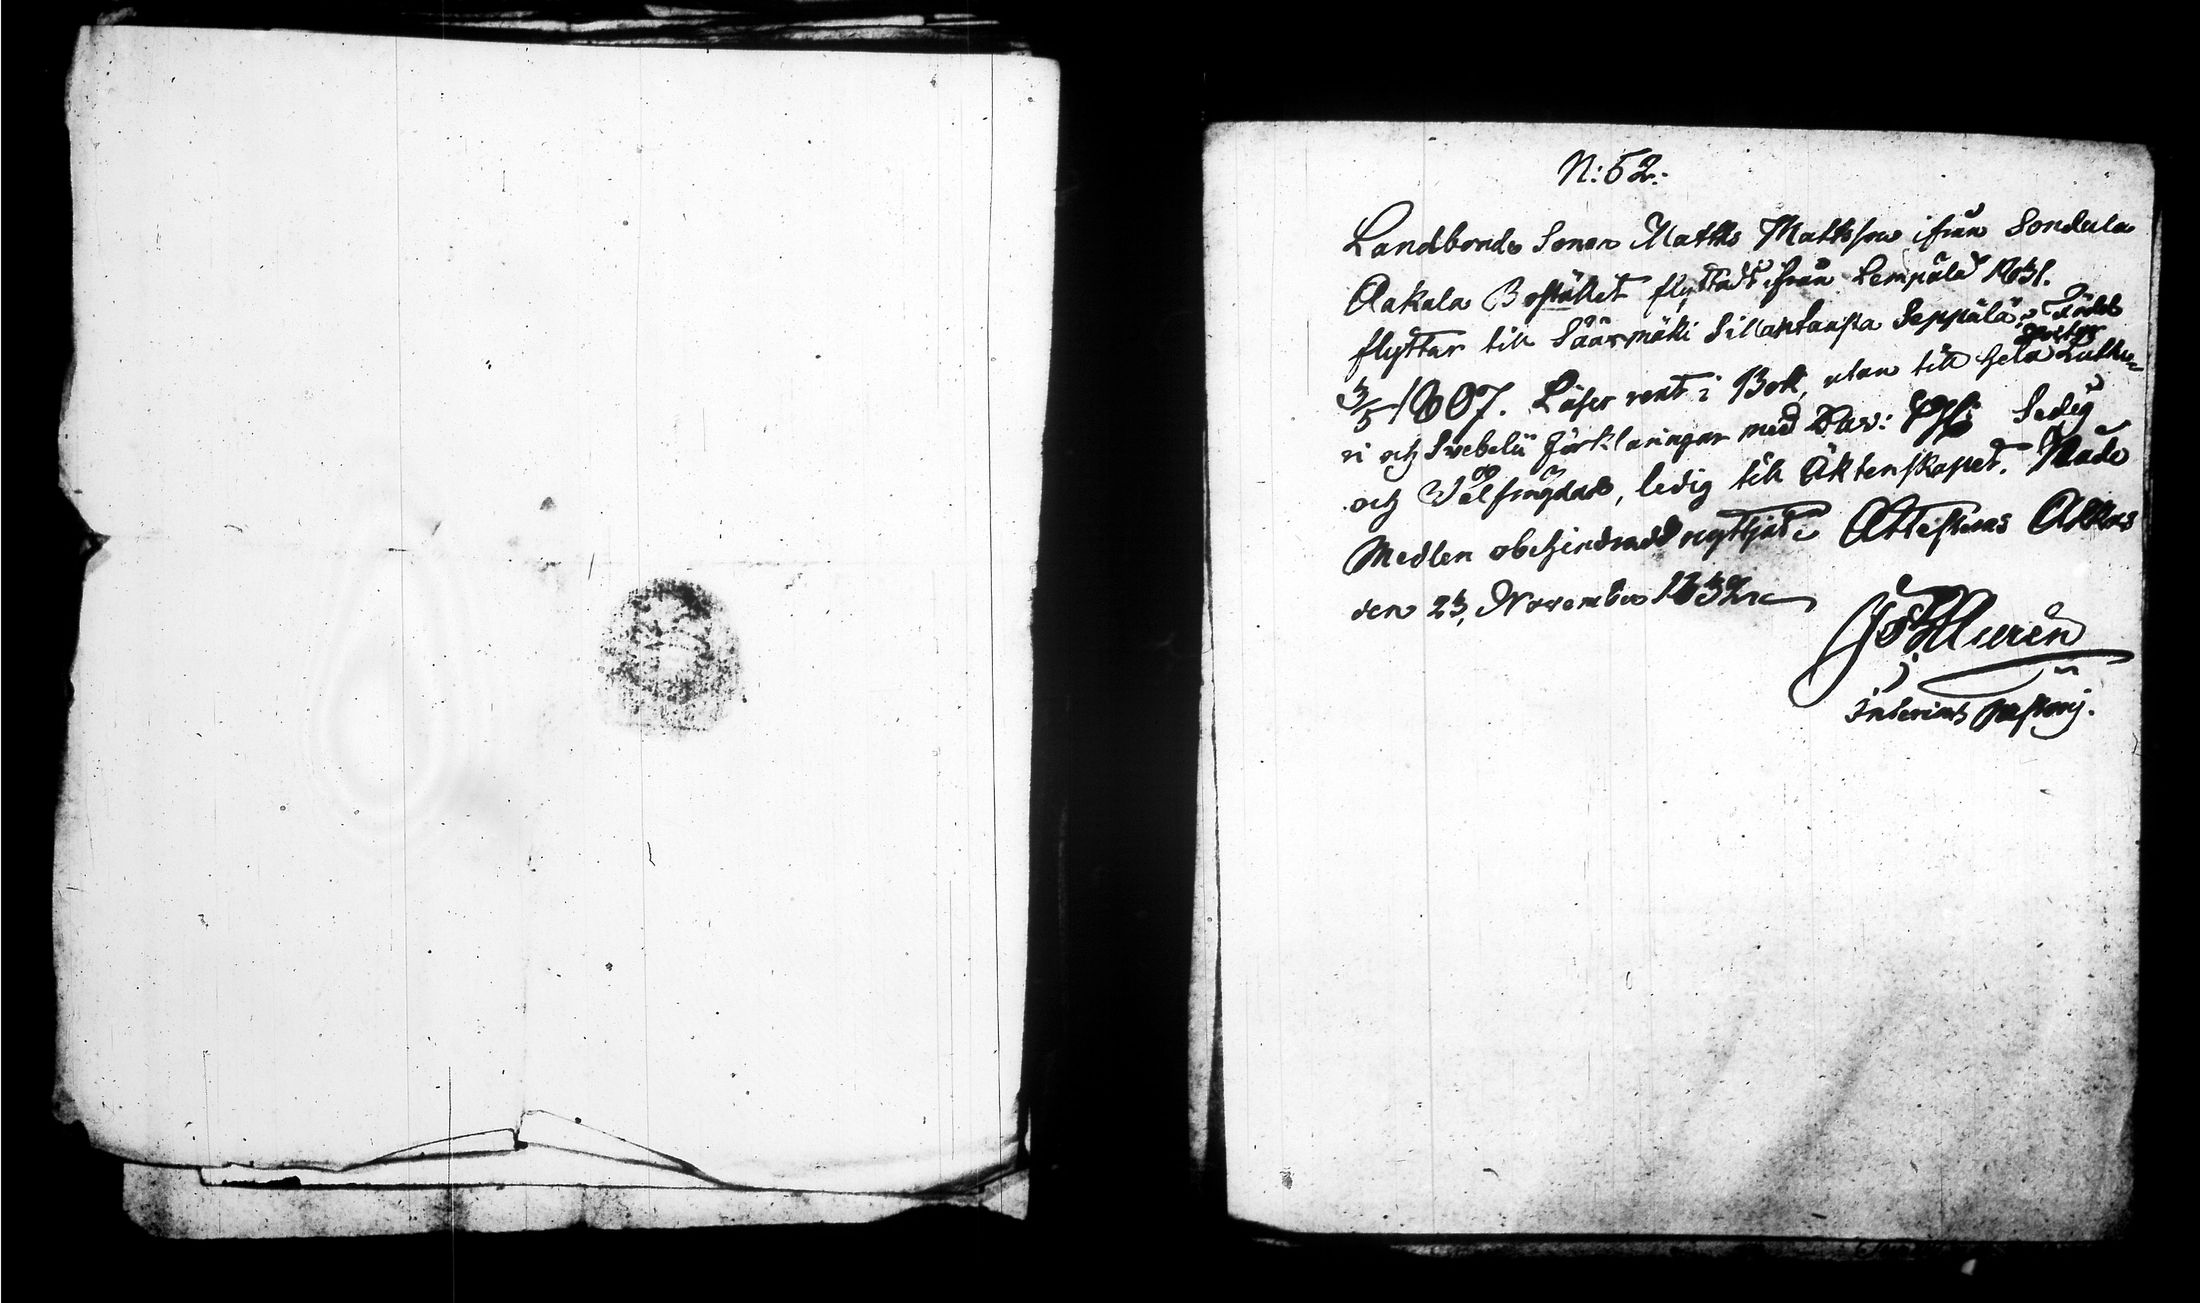 N: 52.
Landbonde Sonen Matths Mattsson ifrån Sondula
Aakala Bostället flyttadt ifrån Lempälä 1831.
flyttar till Säärmäki Sillantausta Seppälä, Född
3/5 1807. Läser rent i Bok, utan till hela Luthe=
ri och Svebelii förklaringar med Dav: Ps: Sedig
och Välfrägdad, ledig till Äktenskapet. Nåde
Medlen obehindradt nyttjat. Attesteras Akkas
den 23, November 1832
Interims Pastorij.